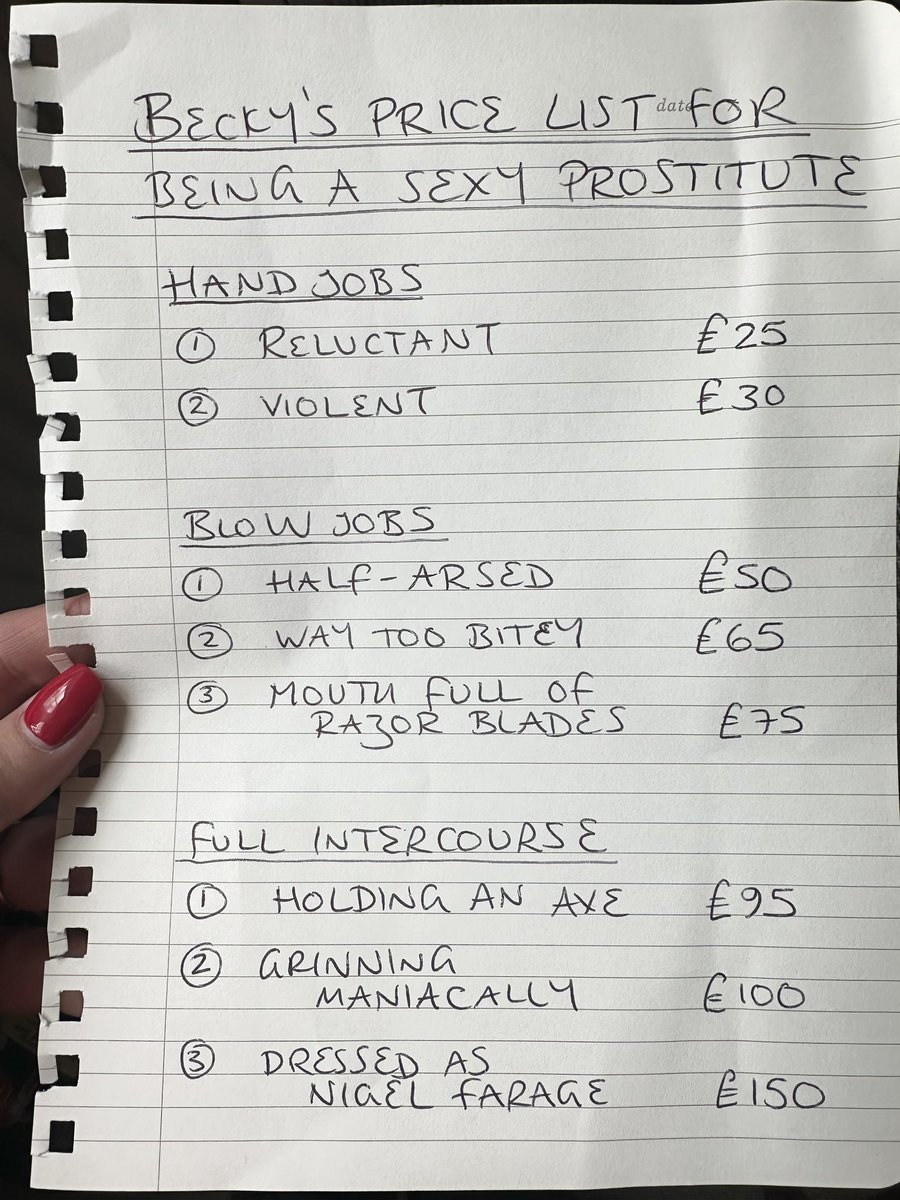 date
BECKY'S PRICE LIST FOR
BEING A SEXY PROSTITUTE
HAND JOBS
① RELUCTANT £25
② VIOLENT £30
BLOW JOBS
① HALF-ARSED £50
② WAY TOO BITEY £65
③ MOUTH FULL OF
RAZOR BLADES £75
FULL INTERCOURSE
① HOLDING AN AXE £95
② GRINNING
MANIACALLY £100
③ DRESSED AS
NIGEL FARAGE £150